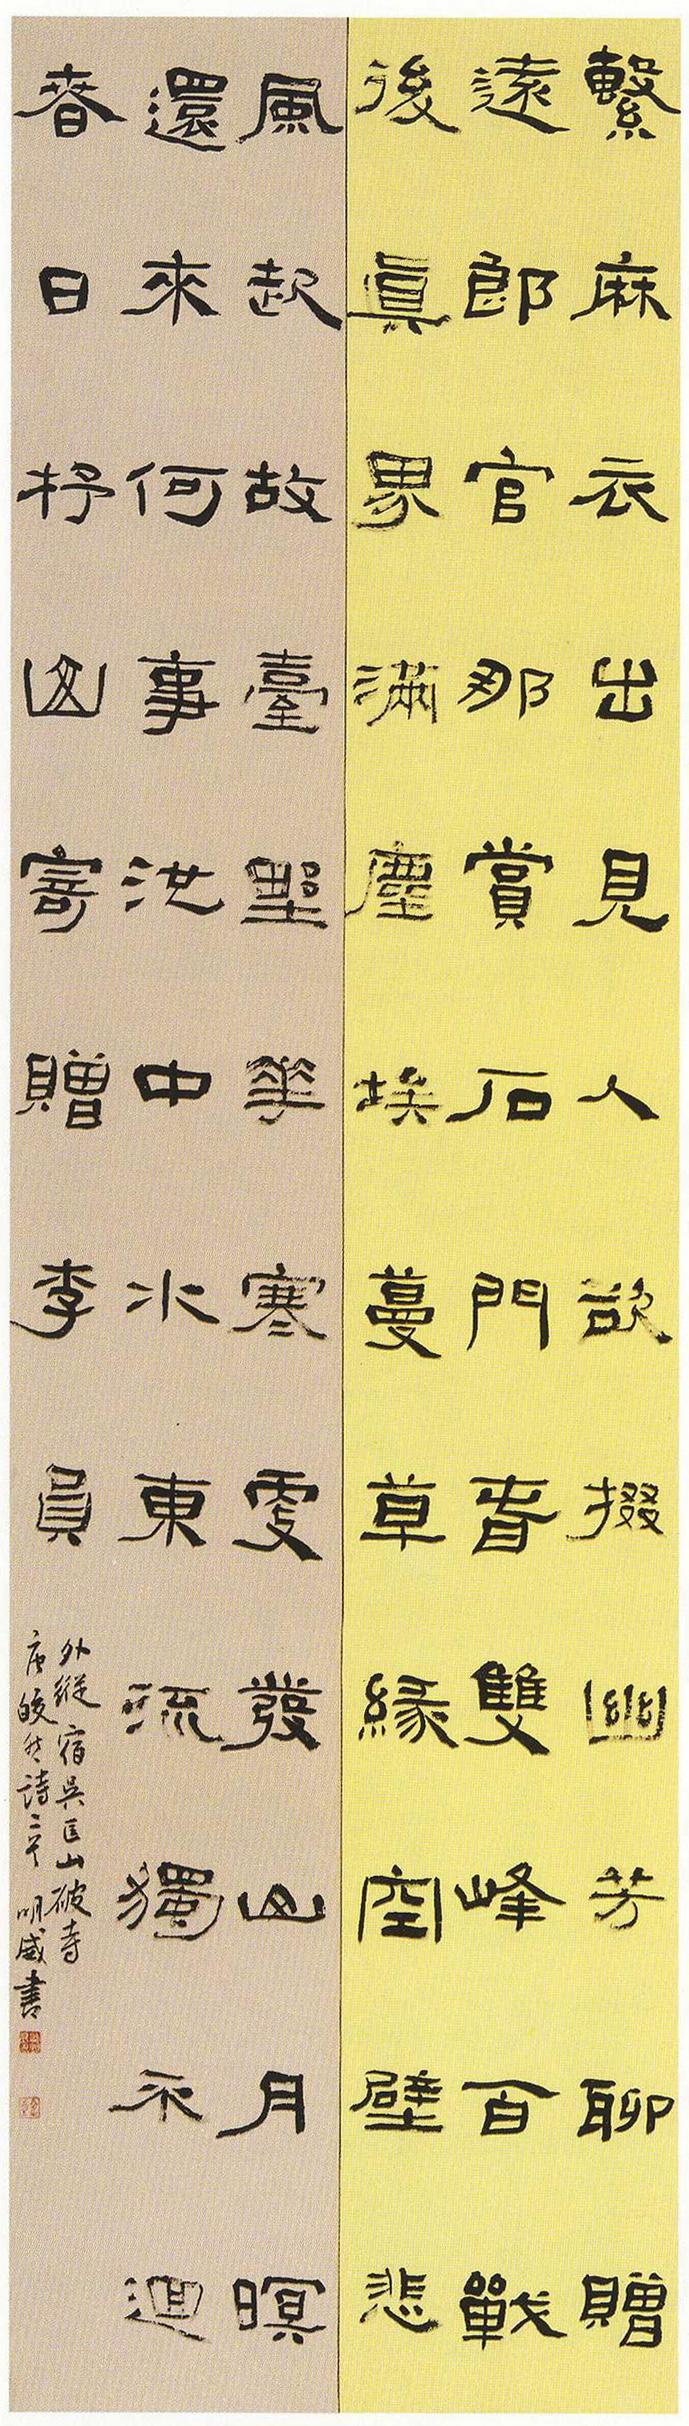 繫麻衣出見人欲掇幽芳聊贈
遠郎官那賞石門春雙峰百戰
後眞界滿塵埃蔓草緣空壁悲
風起故臺野華寒更發山月暝
還來何事池中水東流獨不迴
春日杼山寄贈李員
外縱 宿吳匡山破寺
唐皎然詩二首 明威書